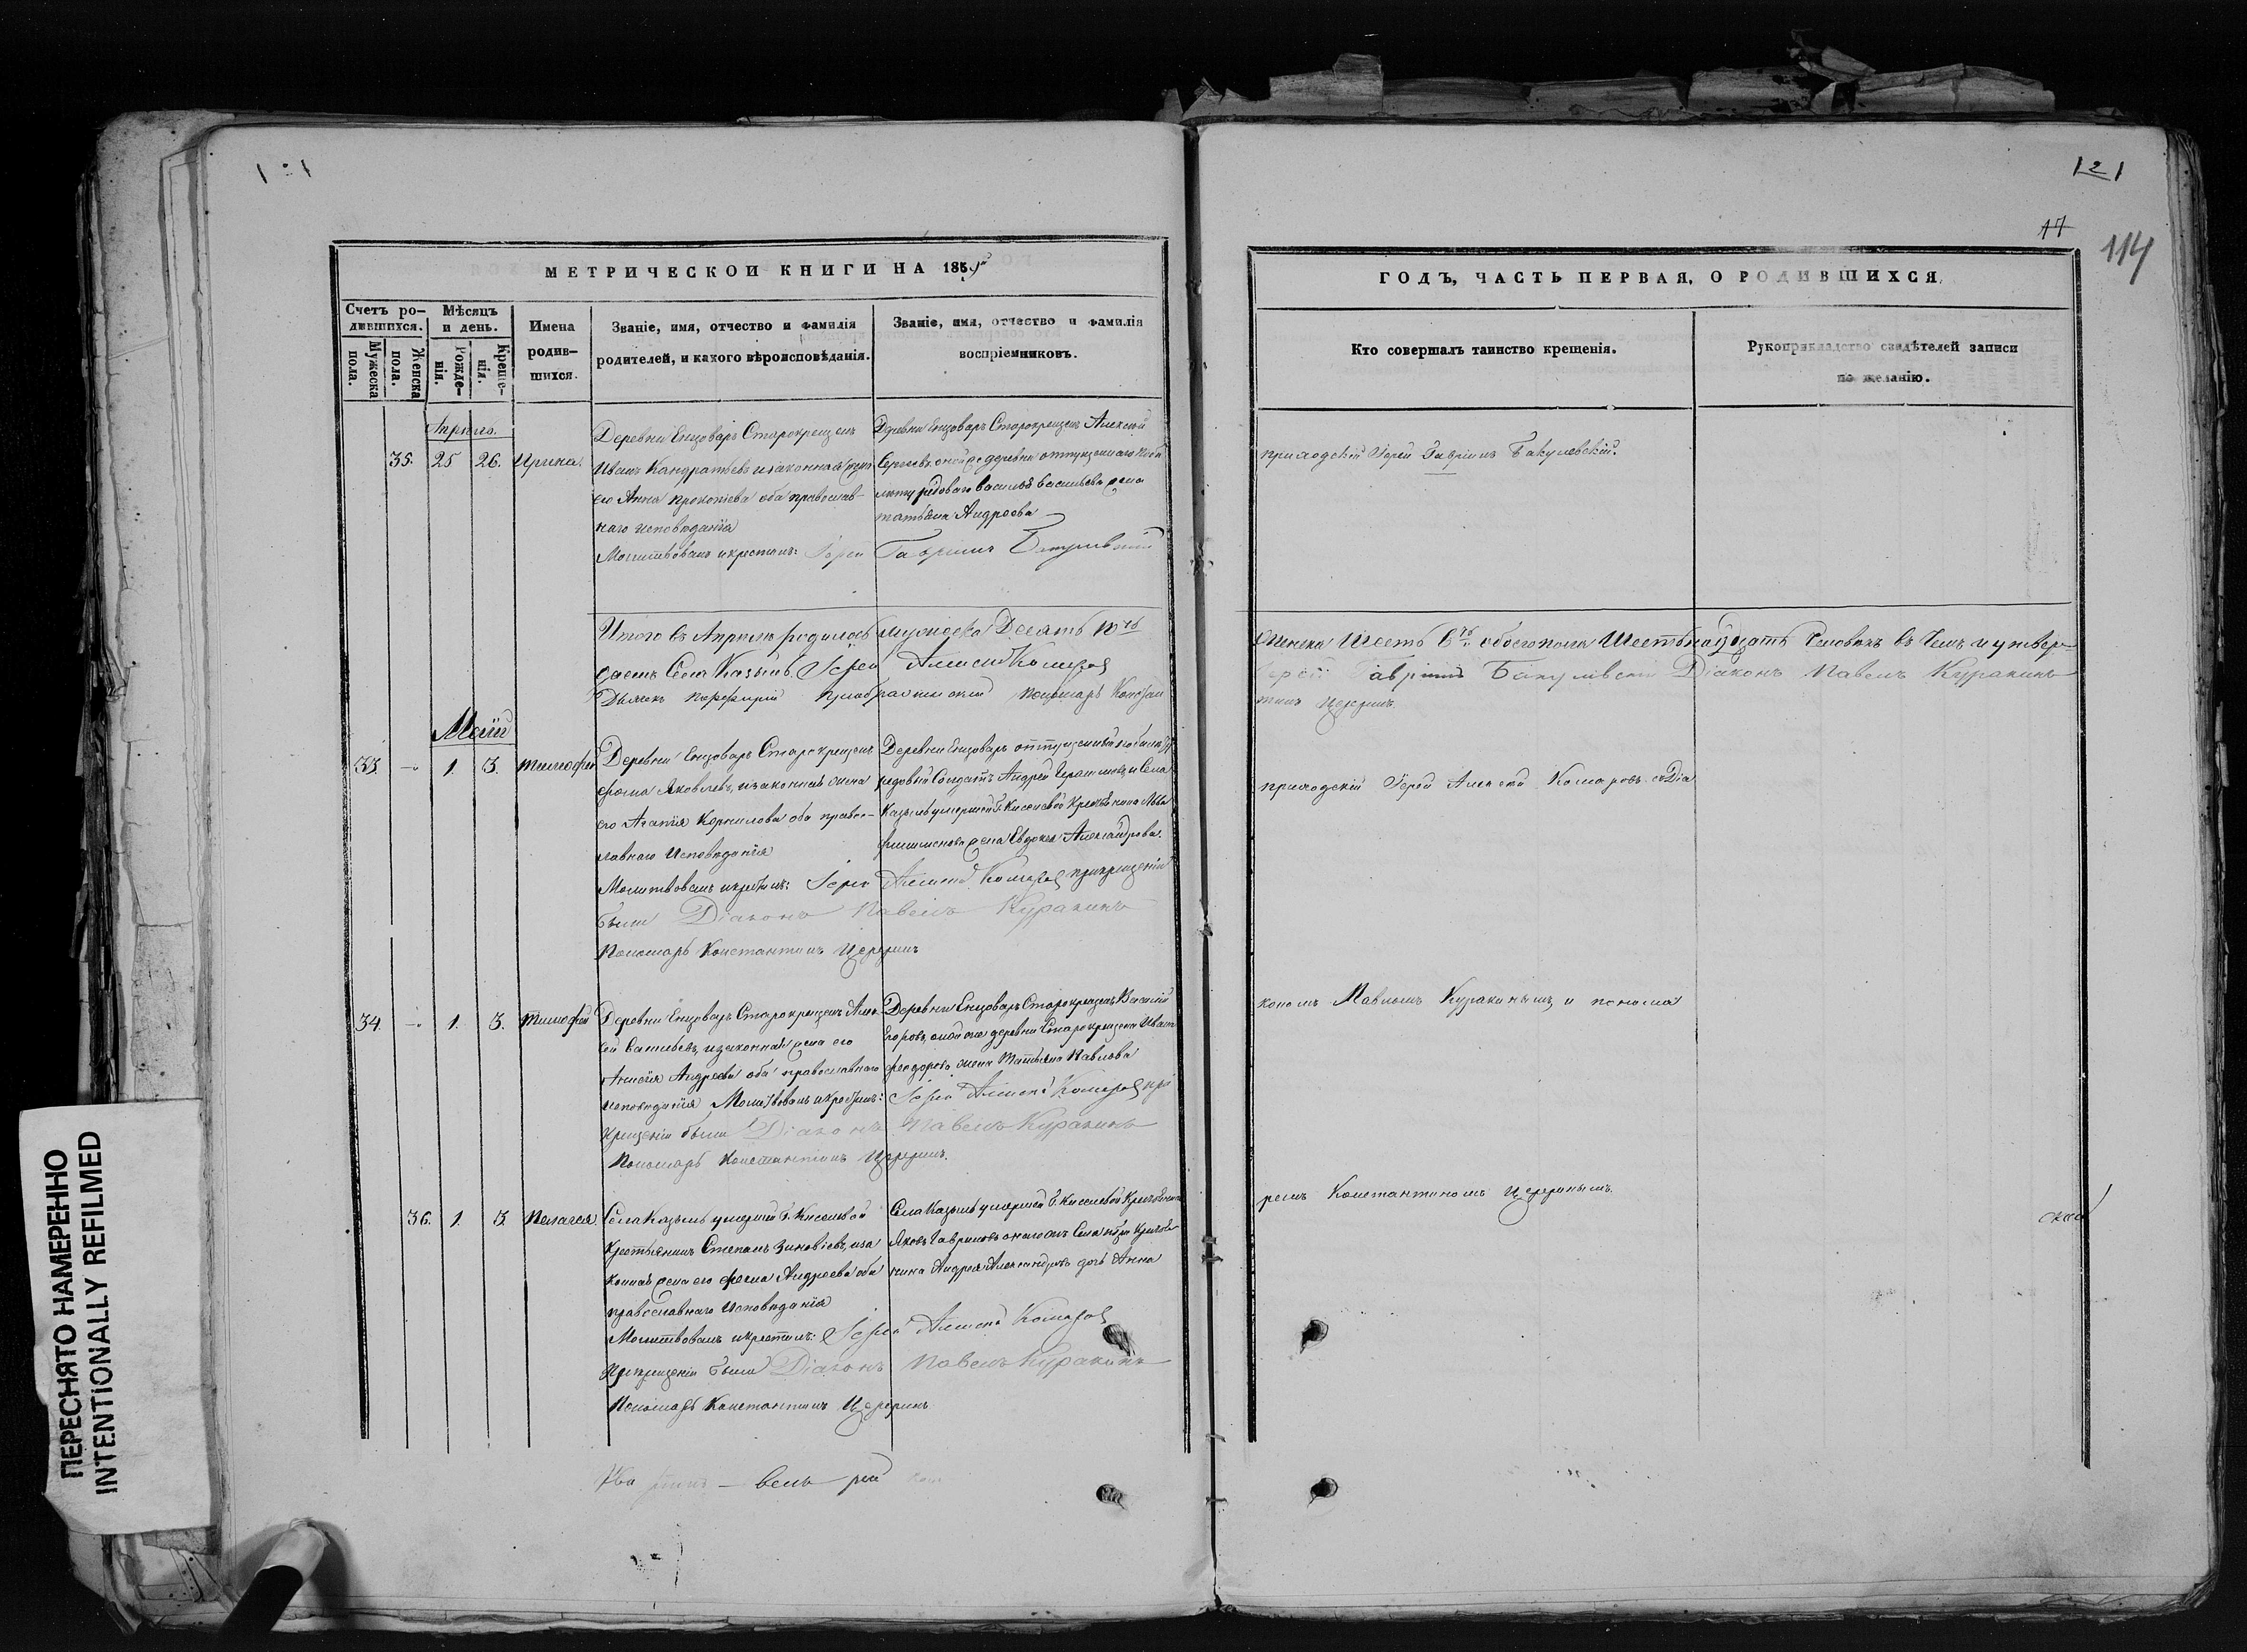 121
121
17
114
МЕТРИЧЕСКОЙ КНИГИ НА 1859й
ГОДЪ, ЧАСТЬ ПЕРВАЯ, О РОДИВШИХСЯ.
Счетъ ро-
дившихся.
Мужеска
пола.
Женска
пола.
Мѣсяцъ
и день.
Рожде-
нія.
Креще-
нія.
Имена
родив-
шихся.
Званіе, имя, отчество и фамилія
родителей, и какого вѣроисповѣданія.
Званіе, имя, отчество и фамилія
воспріемниковъ.
Кто совершалъ таинство крещенія.
Рукоприкладство свидѣтелей записи
по желанію.
Апрѣль.
35. 25 26. Ирина.
Деревни Енцоваръ Старокрещенъ
Иванъ Кандратьевъ и законная жена
его Анна Прокопіева оба православ-
наго исповѣданія
Молитвовалъ и крестилъ: Іерей Гавріилъ Бакулевскій
Деревни Енцоваръ Старокрещенъ Алексѣй
Сергеевъ, оной же деревни отпущеннаго
рядоваго Василья Васильева жена
Татьяна Андреева
приходскій Іерей Гавріилъ Бакулевскій.
Итого въ Апрѣлѣ родилось мужеска Десять 10ть
Женска Шесть 6ть обоего пола Шестьнадцать Человѣкъ въ Чемъ и утвер-
даемъ Села Казыль Іерей Алексѣй Комаровъ
Іерей Гавріилъ Бакулевскій Діаконъ Павелъ Куракинъ
Дьячекъ Порфирій Преображенскій Пономарь Констан
тинъ Церерин
Май
33. — 1. 3. Тимофей
Деревни Енцоваръ Старокрещенъ
Фома Яковлевъ, и законная жена
его Агапія Корнилова оба правос-
лавнаго Исповѣданія
Молитвовалъ и крестилъ: Іерей Алексѣй Комаровъ при крещеніи
были Діаконъ Павелъ Куракинъ
Пономарь Константинъ Церерин
Деревни Енцоваръ отпущенный
рядовый Солдатъ Андрей Герасимовъ и Села
Казыль умершей Г. Киселевой Крестьянина Льва
жена Евдокея Александрова.
приходскій Іерей Алексѣй Комаровъ съ Діа
34. — 1. 3. Тимофей
Деревни Енцоваръ Старокрещенъ Алек-
сѣй Васильевъ, и законная жена его
Анисія Андреева оба православнаго
исповѣданія Молитвовалъ и крестилъ: Іерей Алексѣй Комаровъ при
крещеніи были Діаконъ Павелъ Куракинъ
Пономарь Константинъ Церерин
Деревни Енцоваръ Старокрещенъ Василій
Егоровъ, оной же деревни Старокрещена Ивана
Феодорова жена Татьяна Павлова
кономъ Павломъ Куракинымъ, и понома
36. 1. 3. Пелагея.
Села Казыль умершей Г. Киселевой
Крестьянинъ Степанъ Зиновіевъ, и за
конная жена его Фекла Андреева оба
православнаго Исповѣданія
Молитвовалъ и крестилъ: Іерей Алексѣй Комаровъ
При крещеніи были Діаконъ Павелъ Куракинъ
Пономарь Константинъ Церерин
Села Казыль умершей Г. Киселевой Крестьянинъ
Яковъ Гавриловъ онаго жъ Села Крестья-
нина Андрея Александрова дочь Анна
ремъ Константиномъ
велъ рей
ПЕРЕСНЯТО НАМЕРЕННО
INTENTIONALLY REFILMED